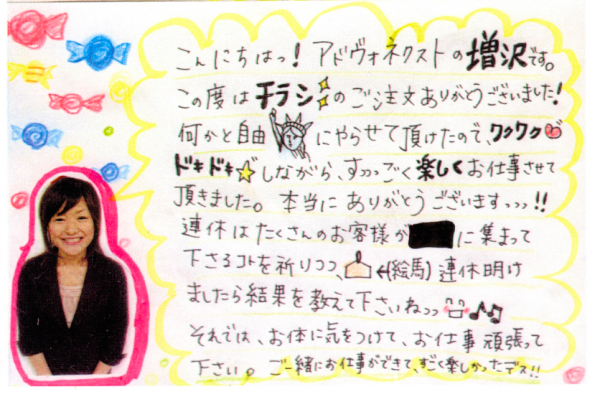 こんにちはっ！アドヴォネクストの増沢です。
この度はチラシのご注文ありがとうございました！
何かと自由にやらせて頂けたので、ワクワク
ドキドキしながら、すっっごく楽しくお仕事させて
頂きました。本当にありがとうございますっっっ!!
連休はたくさんのお客様が に集まって
下さるコトを祈りつつ、←(絵馬) 連休明け
ましたら結果を教えて下さいねっっ
それでは、お体に気をつけて、お仕事頑張って
下さい。ご一緒にお仕事ができて、すごく楽しかったデス!!